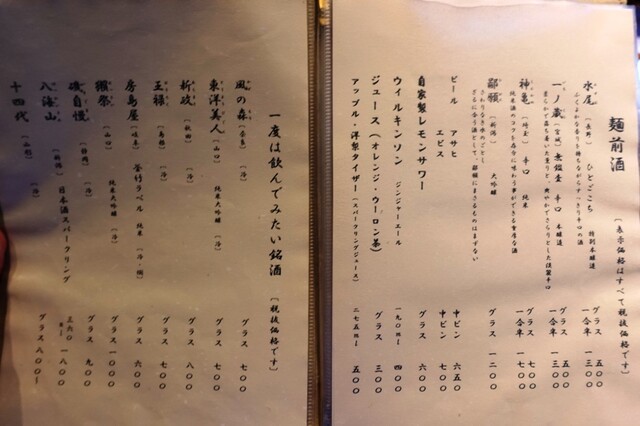 麺前酒 (表示価格はすべて税抜価格です)
水尾 (長野) ひとごこち 特別本醸造 グラス 五〇〇
一合半 一三〇〇
一ノ蔵 (宮城) 無鑑査 辛口 本醸造 グラス 五〇〇
一合半 一三〇〇
神亀 (埼玉) 辛口 純米 グラス 七〇〇
一合半 一七〇〇
鄙願 (新潟) 大吟醸 グラス 一二〇〇
ビール アサヒ 中ビン 六五〇
エビス 中ビン 七〇〇
自家製レモンサワー グラス 六〇〇
ウィルキンソン ジンジャーエール 四〇〇
ジュース (オレンジ・ウーロン茶) グラス 三〇〇
アップル・洋梨タイザー (スパークリングジュース) 五〇〇
一度は飲んでみたい銘酒 (税抜価格です)
風の森 (奈良) (冷) グラス 七〇〇
東洋美人 (山口) 純米大吟醸 (冷) グラス 七〇〇
新政 (秋田) (冷) グラス 八〇〇
王禄 (島根) (冷) グラス 七〇〇
房島屋 (岐阜) 純米 (冷・燗) グラス 六〇〇
獺祭 (山口) 純米大吟醸 (冷) グラス 一〇〇〇
磯自慢 (静岡) (冷) グラス 九〇〇
八海山 (新潟) 日本酒スパークリング 三六〇 一八〇〇
十四代 (山形) (冷) グラス 八〇〇〜